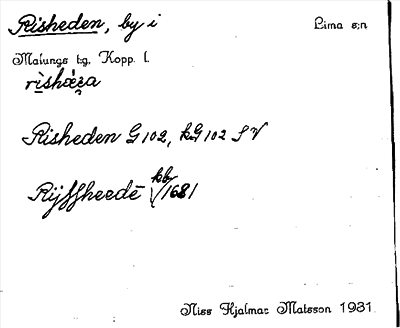 Risheden, by i Lima s:n
Malungs tg. Kopp. l.
Risheden G 102, kG 102 S V
Rijssheede kb/1681
Nils Hjalmar Matsson 1931